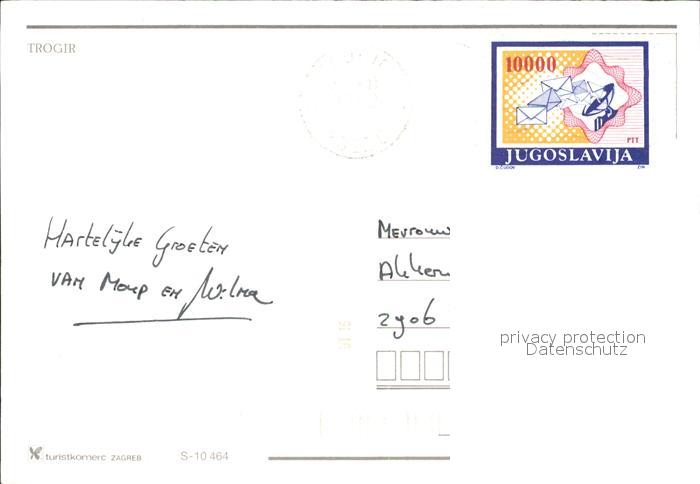 TROGIR
10000
PTT
JUGOSLAVIJA
Hartelijke Groeten
van Moup en Wilma
Mevrouw
Akker
2906
privacy protection
Datenschutz
turistkomerc ZAGREB
S-10 464